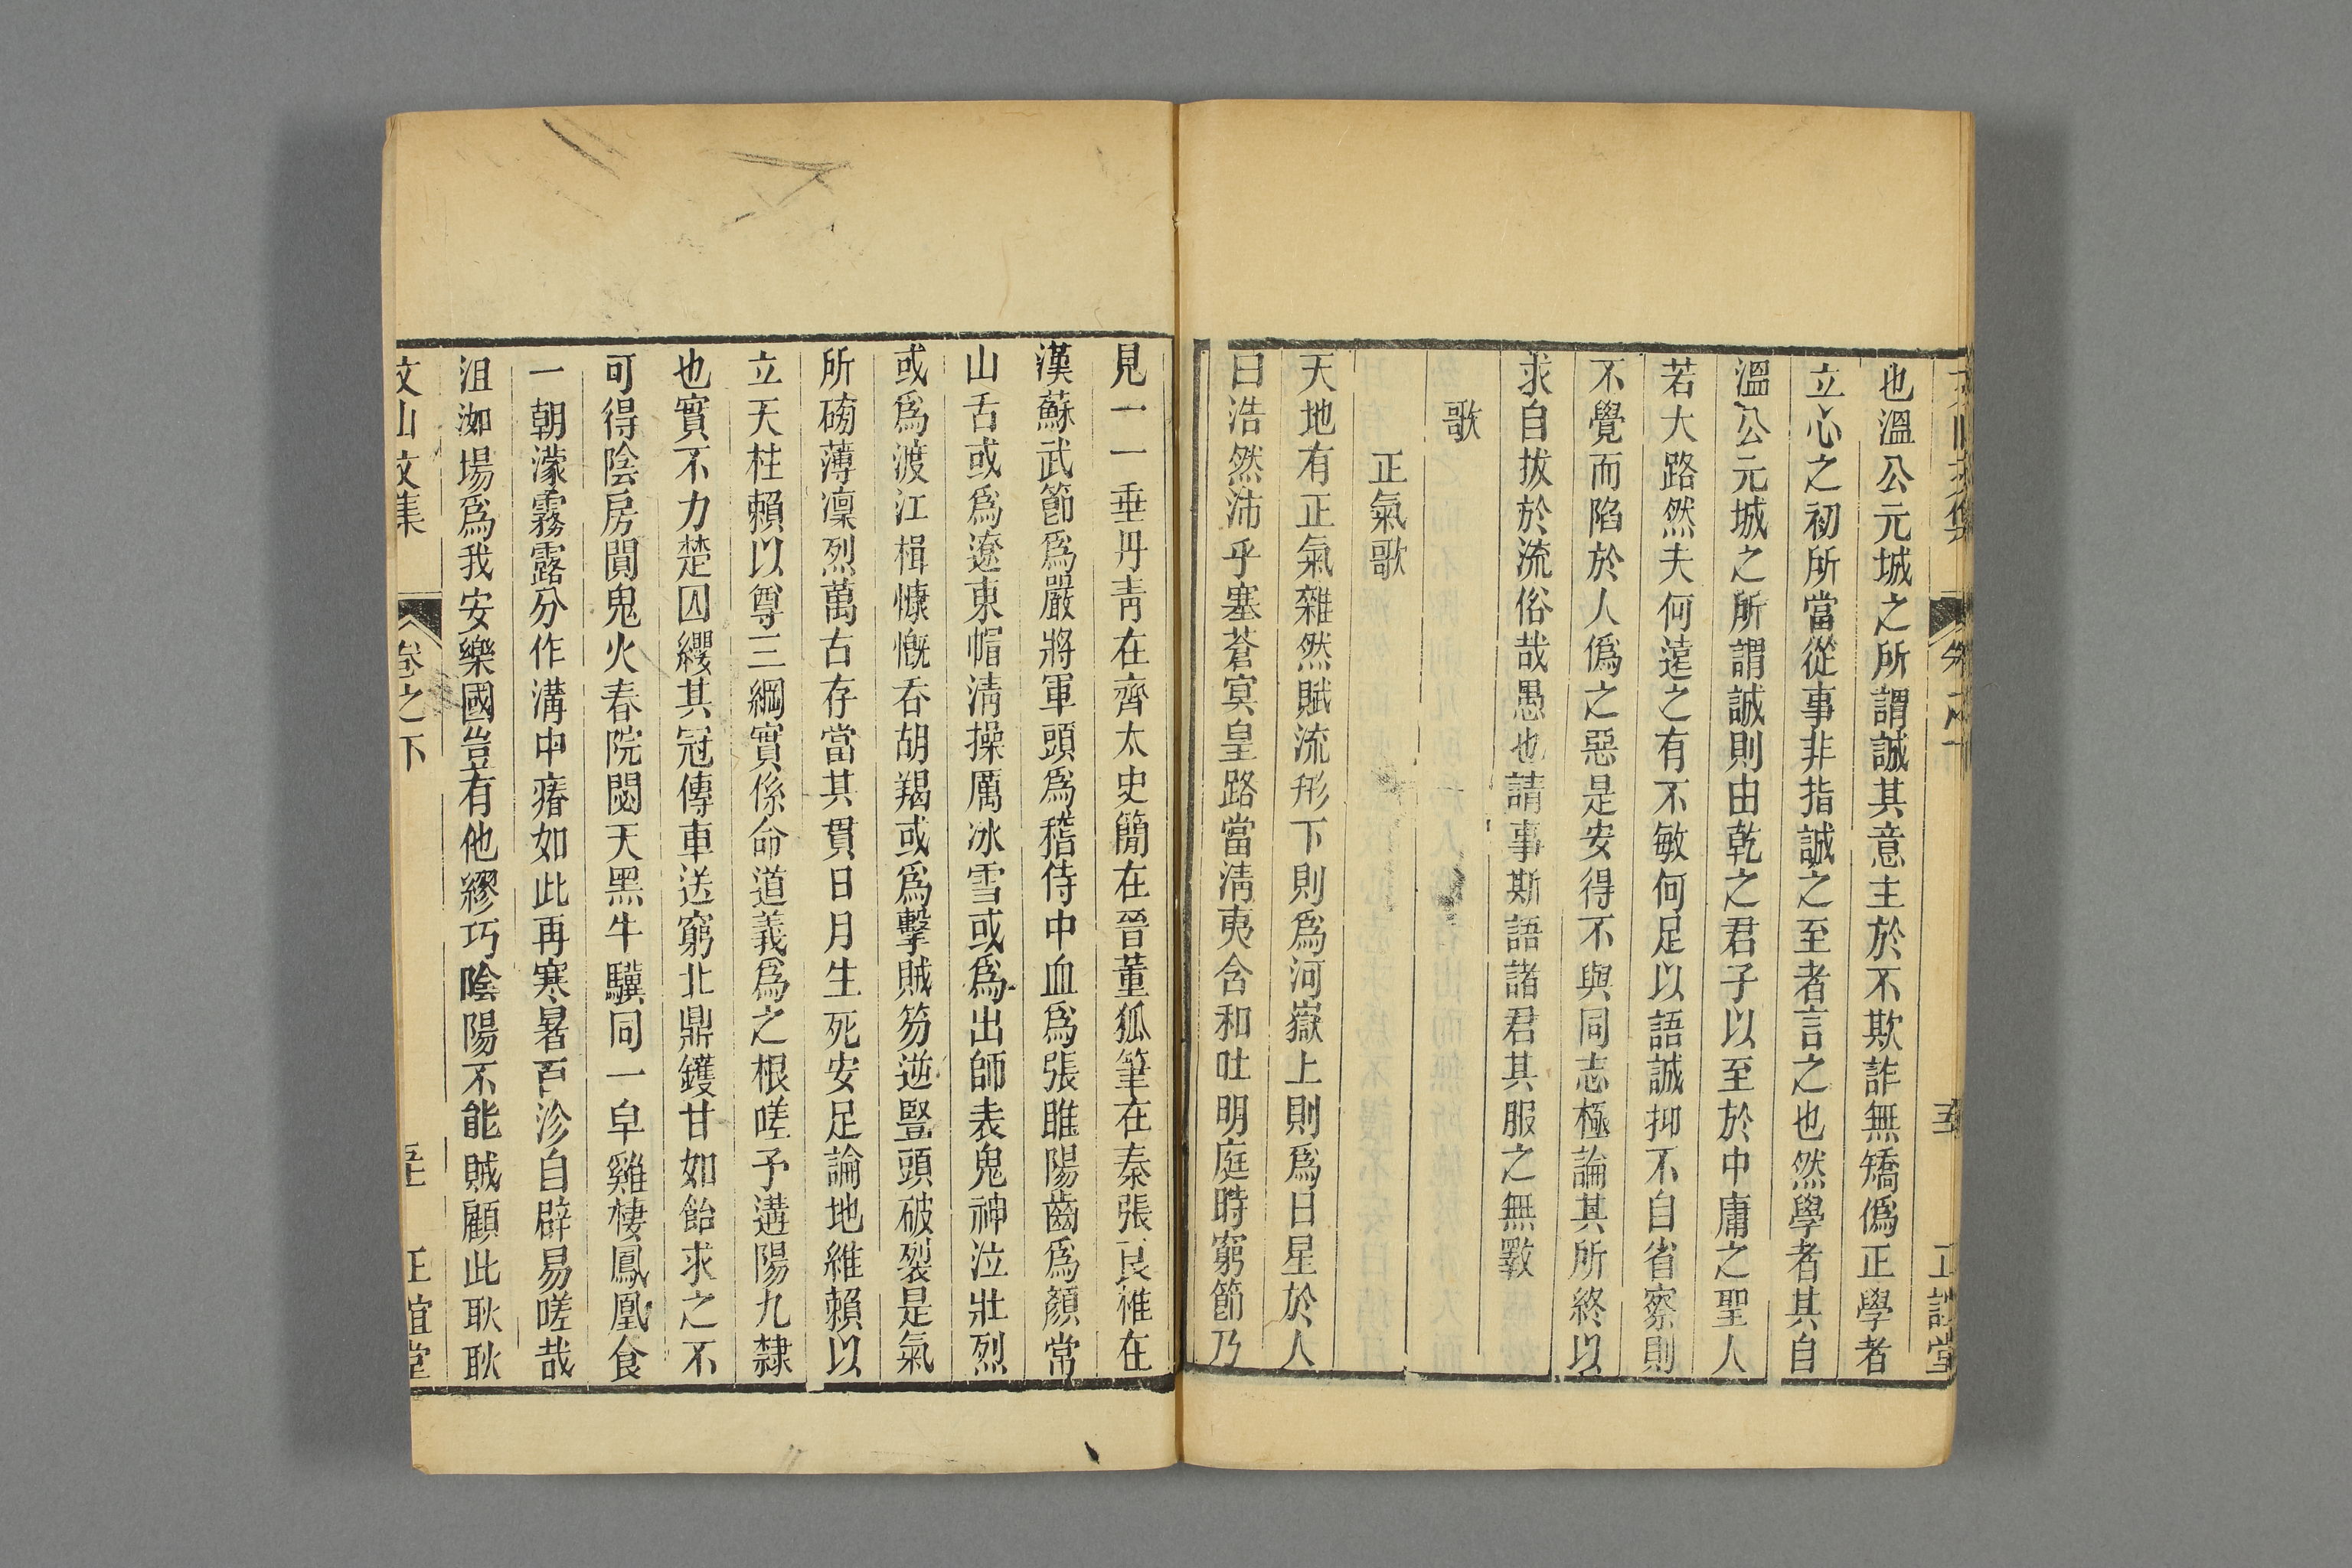 也溫公元城之所謂誠其意主於不欺詐無矯僞正學者
立心之初所當從事非指誠之至者言之也然學者其自
溫公元城之所謂誠則由乾之君子以至於中庸之聖人
若大路然夫何遠之有不敏何足以語誠抑不自省察則
不覺而陷於人僞之惡是安得不與同志極論其所終以
求自拔於流俗哉愚也請事斯語諸君其服之無斁
歌
正氣歌
天地有正氣雜然賦流形下則爲河嶽上則爲日星於人
曰浩然沛乎塞蒼冥皇路當淸夷含和吐明庭時窮節乃
見一一垂丹靑在齊太史簡在晉董狐筆在秦張良椎在
漢蘇武節爲嚴將軍頭爲嵇侍中血爲張睢陽齒爲顏常
山舌或爲遼東帽淸操厲冰雪或爲出師表鬼神泣壯烈
或爲渡江楫慷慨吞胡羯或爲擊賊笏逆豎頭破裂是氣
所磅薄凜烈萬古存當其貫日月生死安足論地維賴以
立天柱賴以尊三綱實係命道義爲之根嗟予遘陽九隸
也實不力楚囚纓其冠傳車送窮北鼎鑊甘如飴求之不
可得陰房閴鬼火春院閟天黑牛驥同一皁雞棲鳳凰食
一朝濛霧露分作溝中瘠如此再寒暑百沴自辟易嗟哉
沮洳場爲我安樂國豈有他繆巧陰陽不能賊顧此耿耿
文山文集 卷之下 正誼堂